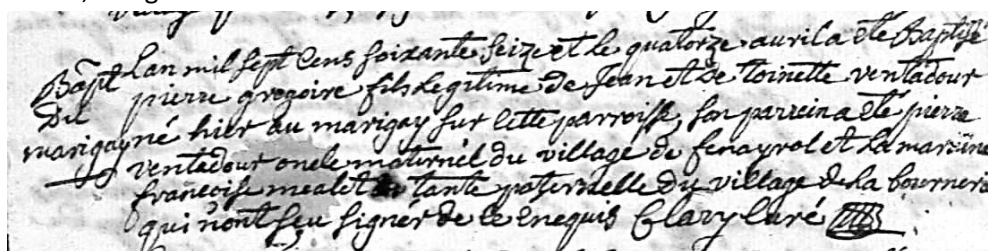 Bapt Lan mil sept Cens soixante seize et le quatorze avril a ete Baptisé
Du pierre gregoire fils Legitime de Jean et de toinette ventadour
marigay né hier au marigay sur Cette parroisse, son parrein a eté pierre
ventadour oncle maternel du village de fenayrol et La mareine
françoise mealet tante paternelle du village de la bourneri
qui n'ont sçu signer de ce enequis Clary Curé